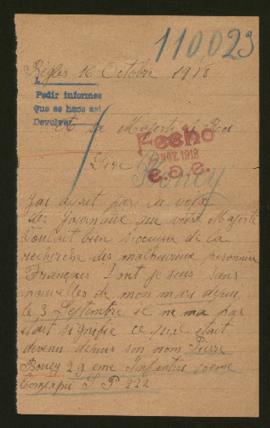 110023
Règles 12 Octobre 1918
Pedir informes
Que se hace así
Devolver.
A Sa Majesté le Roi
Fecho
NOV. 1918
Sire
Boucy
J'ai apprit par la voix
des journeaux que votre Majesté
voulait bien s'occuper de la
recherche des malheureux prisonniers
Français dont je suis sans
nouvelles de mon mari depuis
le 3 Septembre se ne ma pas
était signifié ce quil était
devenu depuis son nom Pierre
Boucy 29 eme infanterie
Compagnie S P 222